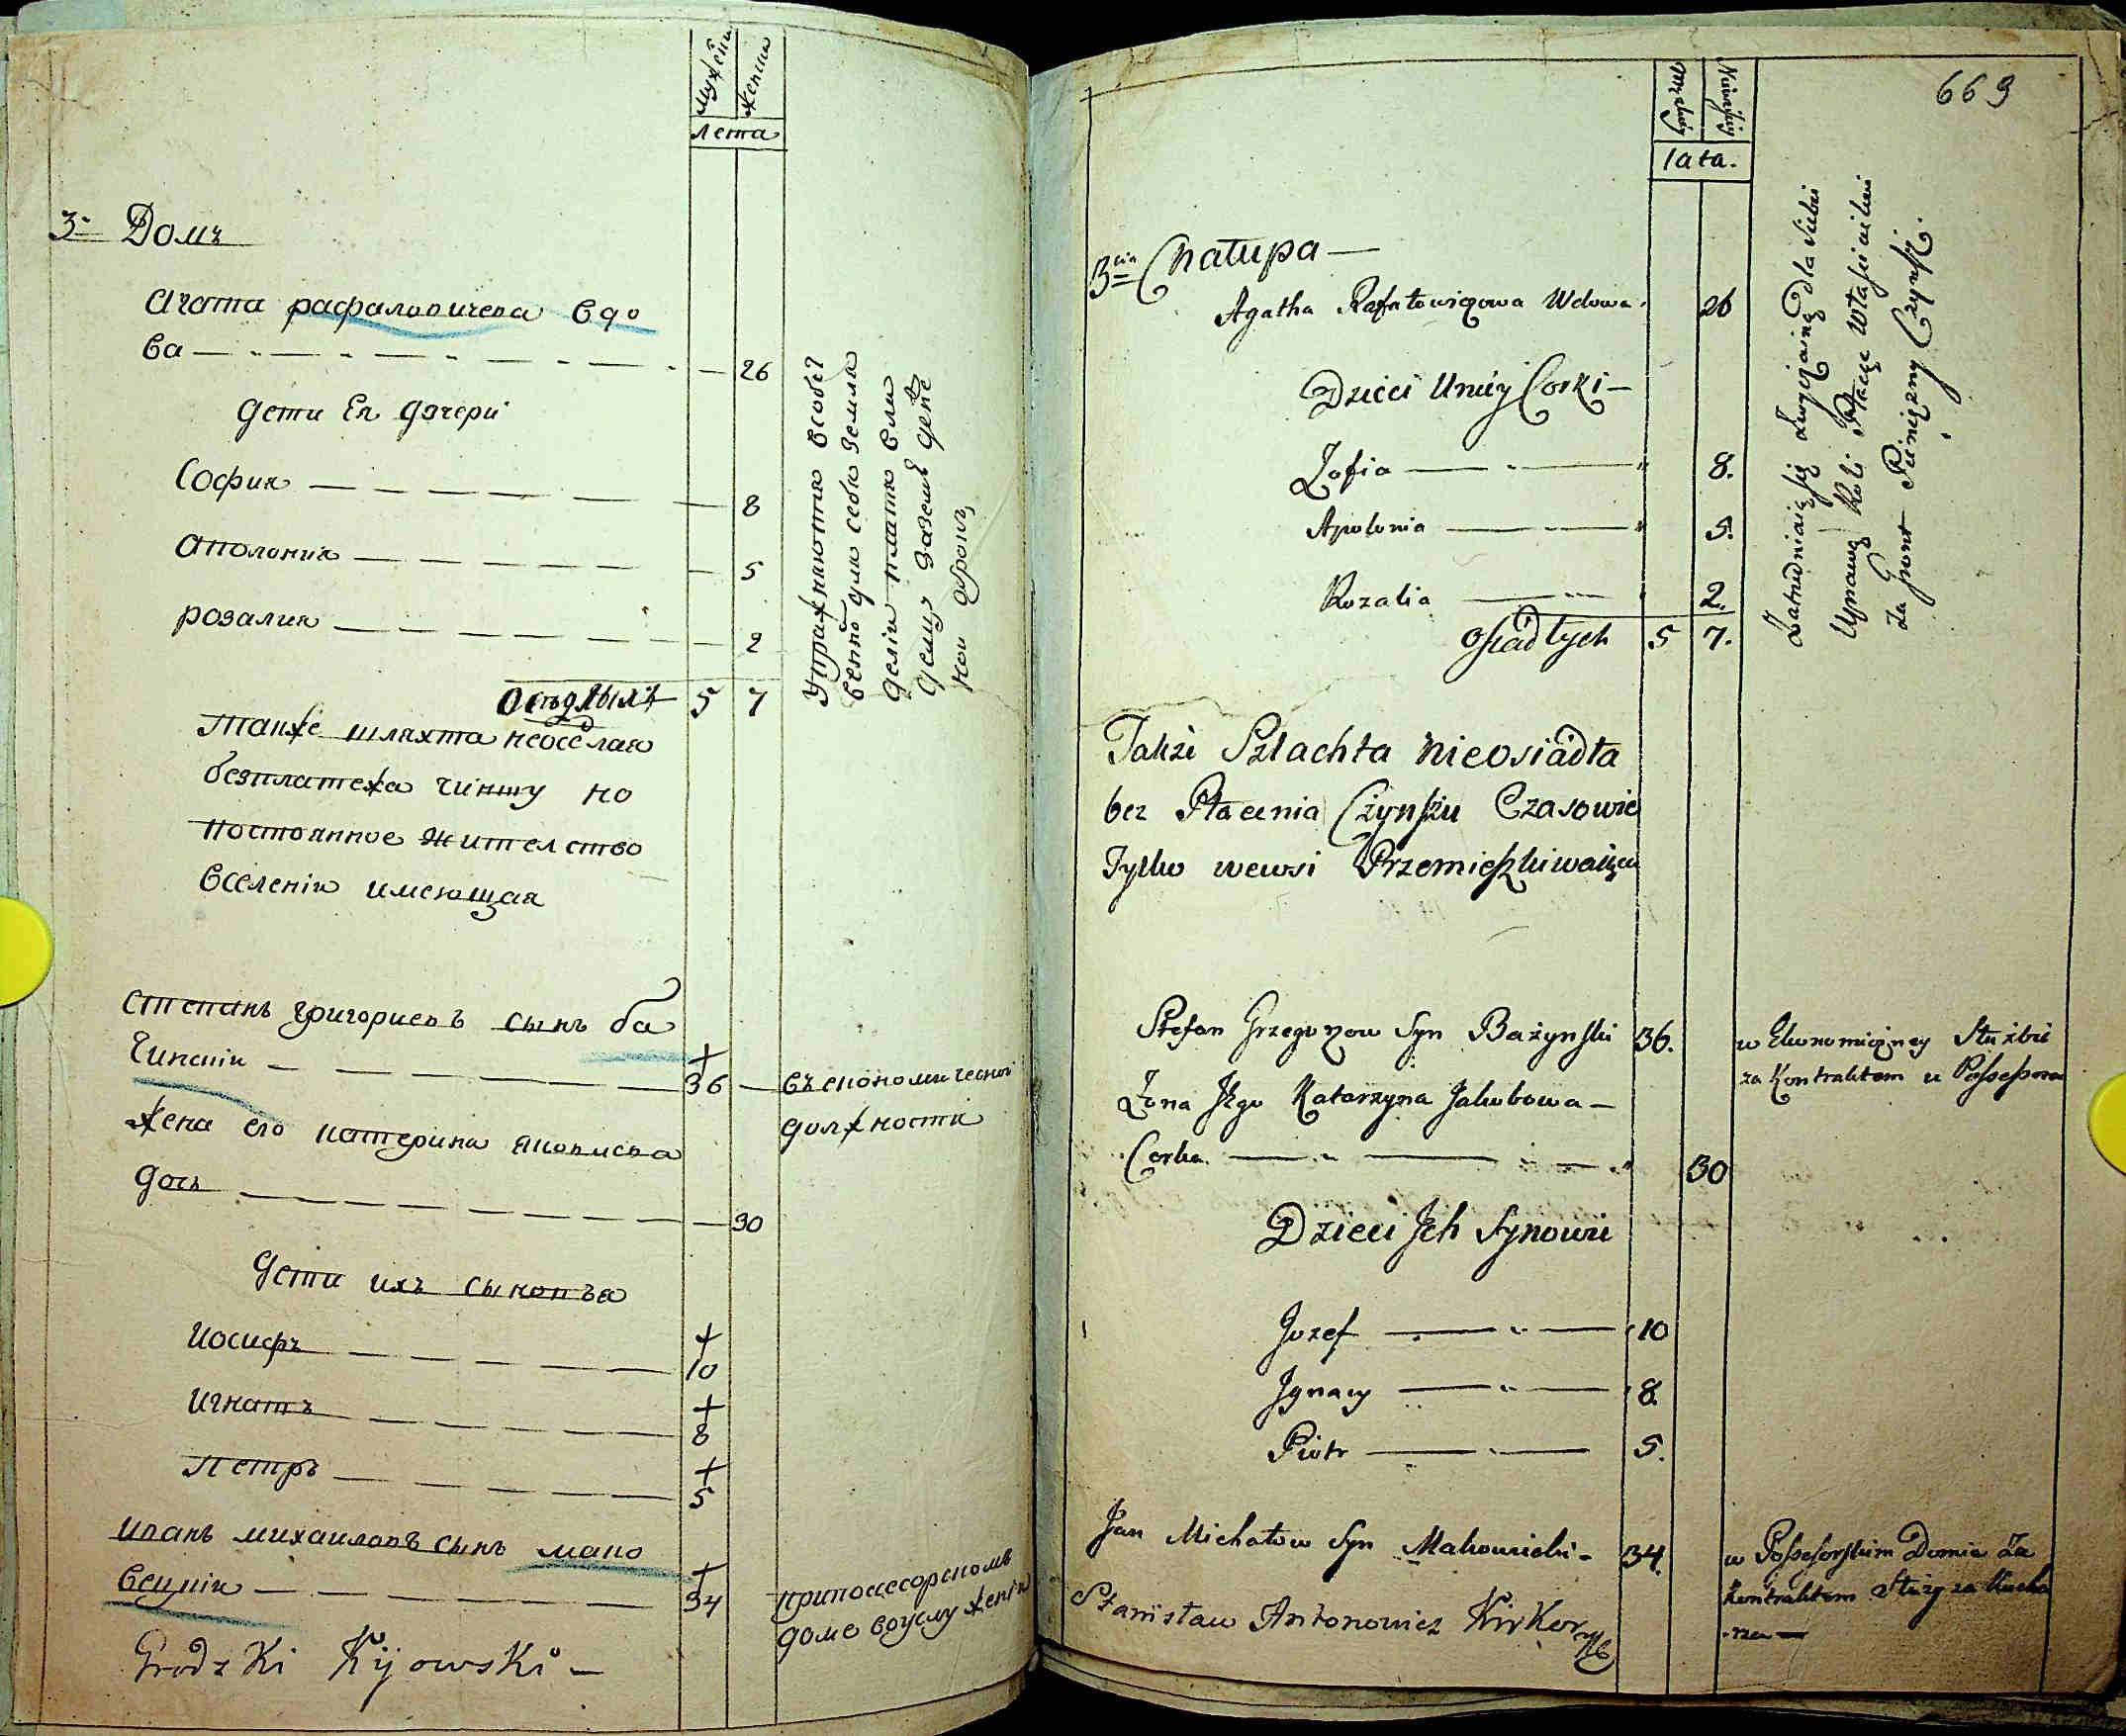 Мужеска
Женска
Лета
3. Домъ
Агата рафаловичева вдо
ва 26
дети Ея дочери
София 8
Аполония 5
розалия 2
Упражняются всобст
венно для себя земле
делием плата вла
дельцу заземлю дене
жной оброкъ
Оседлыхъ 5 7
также шляхта неоседлая
безплатежа чиншу но
постоянное жителство
вселении имеющая
Степанъ григориевъ сынъ ба
жинский 36 въ економической
должности
жена его катерина яковлева
дочь 30
дети ихъ сыновья
Иосифъ 10
Игнатъ 8
Петръ 5
Иванъ михаиловъ сынъ мако
вецкий 34 припосесорскомъ
доме вуслужении
Grodzki Kijowski
669
Męzkiey
Niewieściey
lata.
3cia Chałupa —
Agatha Rafałowiczowa Wdowa 26
Dzieci Uniey Corki —
Zofia 8.
Apolonia 5.
Rozalia 2.
Osiadłych 5 7.
Zatrudniaią się Zwyczayną dla Siebie
Uprawą Roli Płacąc właścicielowi
Za Gront Pieniężny Czynsz.
Także Szlachta Nieosiadła
bez Płacenia Czynszu Czasowie
Tylko wewsi Przemieszkiwaiąca
Stefan Grzegorzow Syn Bażynski 36. w Ekonomiczney Służbie
za Kontraktem u Possessora
Żona Jego Katarzyna Jakubowa —
Corka 30
Dzieci Ich Synowie
Jozef 10
Ignacy 8.
Piotr 5.
Jan Michałow Syn Makowiecki — 34. w Possessorskim Domie Za
Kontraktem Służy za Kucha
rza —
Stanisław Antonowicz Kirkor